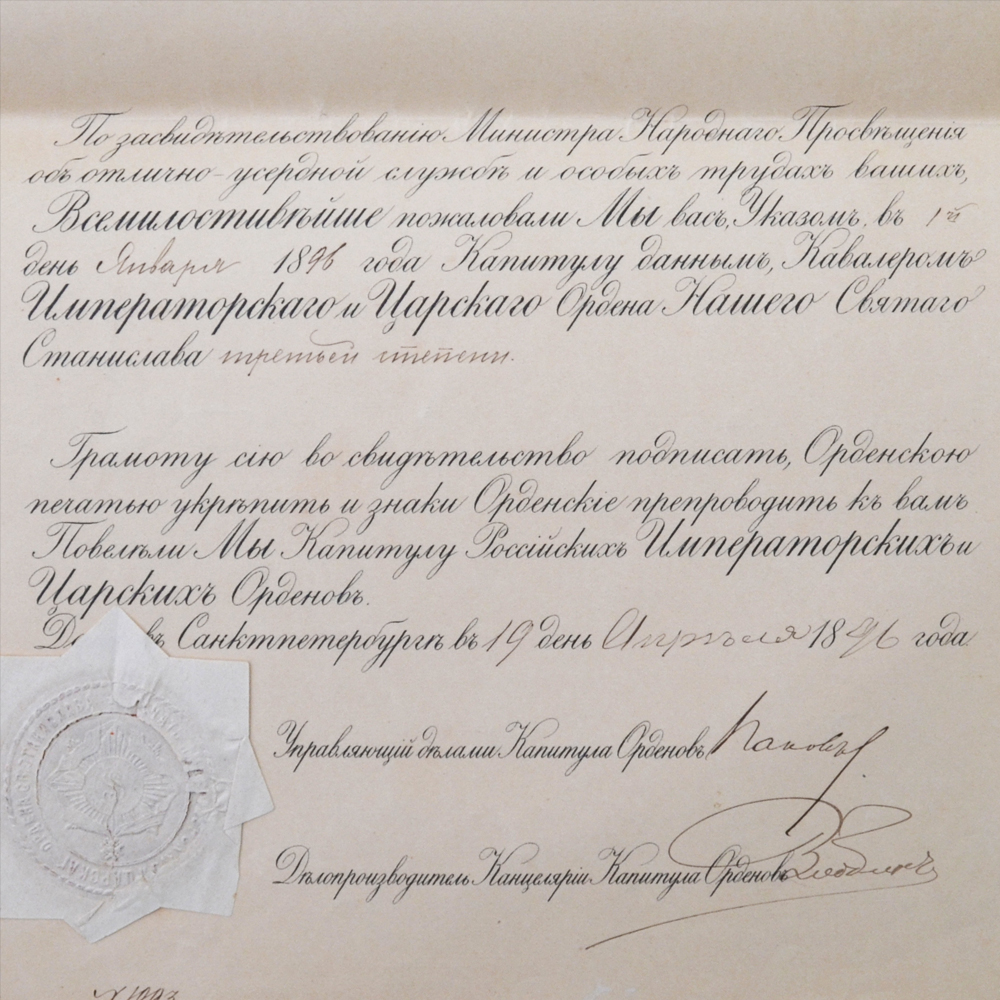 По засвидѣтельствованію Министра Народнаго Просвѣщенія
объ отлично-усердной службѣ и особыхъ трудахъ вашихъ,
Всемилостивѣйше пожаловали Мы васъ, Указомъ, въ 1й
день Января 1896 года Капитулу даннымъ, Кавалеромъ
Императорскаго и Царскаго Ордена Нашего Святаго
Станислава третьей степени.
Грамоту сію во свидѣтельство подписать, Орденскою
печатью укрѣпить и знаки Орденскіе препроводить къ вамъ
Повелѣли Мы Капитулу Россійскихъ Императорскихъ и
Царскихъ Орденовъ.
въ Санктпетербургѣ въ 19 день Апрѣля 1896 года.
Управляющій дѣлами Капитула Орденовъ,
Дѣлопроизводитель Канцеляріи Капитула Орденовъ